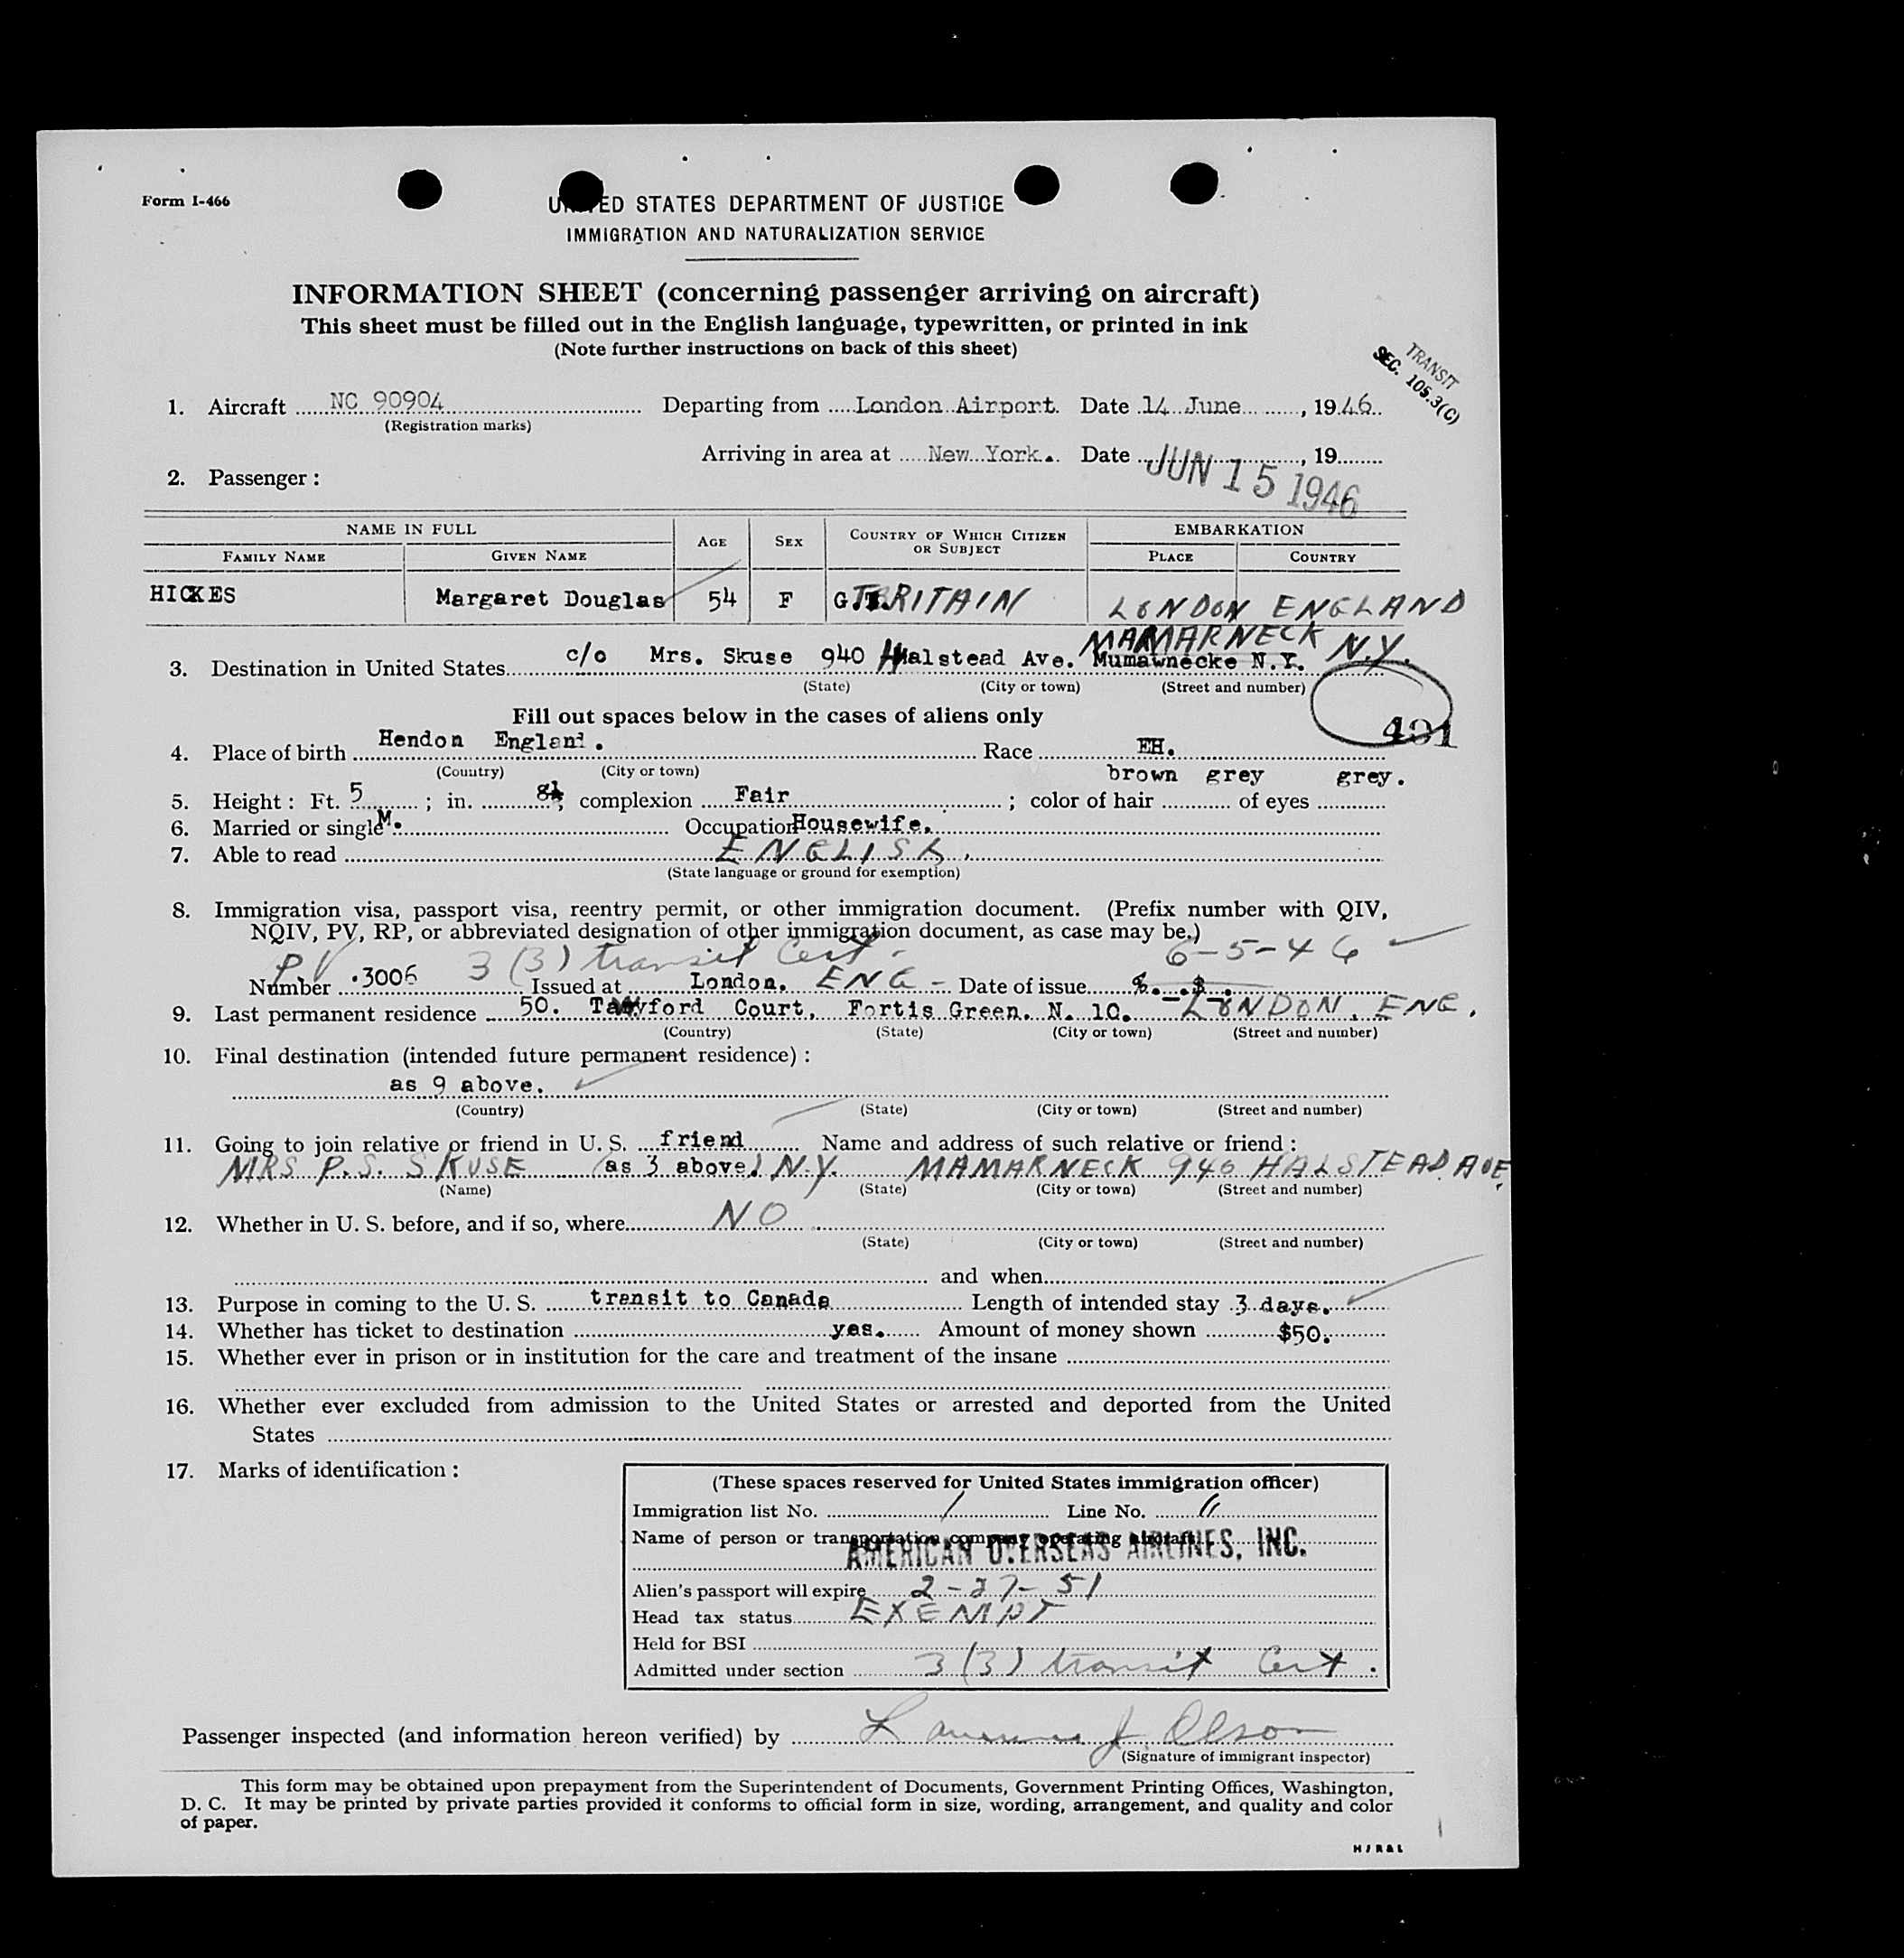 Form I-466
UNITED STATES DEPARTMENT OF JUSTICE
IMMIGRATION AND NATURALIZATION SERVICE
INFORMATION SHEET (concerning passenger arriving on aircraft)
This sheet must be filled out in the English language, typewritten, or printed in ink
(Note further instructions on back of this sheet)
TRANSIT
SEC. 105.3(C)
1. Aircraft NC 90904 Departing from London Airport. Date 14 June, 1946
(Registration marks)
Arriving in area at New York. Date JUN 15 1946, 19
2. Passenger:
NAME IN FULL AGE SEX COUNTRY OF WHICH CITIZEN OR SUBJECT EMBARKATION
FAMILY NAME GIVEN NAME PLACE COUNTRY
HICKES Margaret Douglas 54 F G.T.BRITAIN LONDON ENGLAND
MAMARNECK N.Y.
3. Destination in United States c/o Mrs. Skuse 940 Halstead Ave. Mumawnecke N.Y.
(State) (City or town) (Street and number)
Fill out spaces below in the cases of aliens only
491
4. Place of birth Hendon England. Race EH.
(Country) (City or town)
brown grey grey.
5. Height: Ft. 5; in.; complexion Fair; color of hair of eyes
6. Married or single M. Occupation Housewife.
7. Able to read ENGLISH.
(State language or ground for exemption)
8. Immigration visa, passport visa, reentry permit, or other immigration document. (Prefix number with QIV,
NQIV, PV, RP, or abbreviated designation of other immigration document, as case may be.)
PV 3 (3) transit Cert. 6-5-46
Number 3006 Issued at London. ENG - Date of issue
9. Last permanent residence 50. Court, Fortis Green. N. 10. LONDON. ENG.
(Country) (State) (City or town) (Street and number)
10. Final destination (intended future permanent residence):
as 9 above.
(Country) (State) (City or town) (Street and number)
11. Going to join relative or friend in U. S. friend Name and address of such relative or friend:
MRS P. S. SKUSE (as 3 above) N.Y. MAMARNECK 940 HALSTEAD AVE.
(Name) (State) (City or town) (Street and number)
12. Whether in U. S. before, and if so, where NO
(State) (City or town) (Street and number)
and when
13. Purpose in coming to the U. S. transit to Canada Length of intended stay 3 days.
14. Whether has ticket to destination yes. Amount of money shown $50.
15. Whether ever in prison or in institution for the care and treatment of the insane
16. Whether ever excluded from admission to the United States or arrested and deported from the United
States
17. Marks of identification:
(These spaces reserved for United States immigration officer)
Immigration list No. 1 Line No. 11
Name of person or transportation company operating aircraft
AMERICAN OVERSEAS AIRLINES, INC.
Alien's passport will expire 2-27-51
Head tax status EXEMPT
Held for BSI
Admitted under section 3 (3) transit Cert.
Passenger inspected (and information hereon verified) by Lawrence J. Olson
(Signature of immigrant inspector)
This form may be obtained upon prepayment from the Superintendent of Documents, Government Printing Offices, Washington,
D. C. It may be printed by private parties provided it conforms to official form in size, wording, arrangement, and quality and color
of paper.
H J R & L